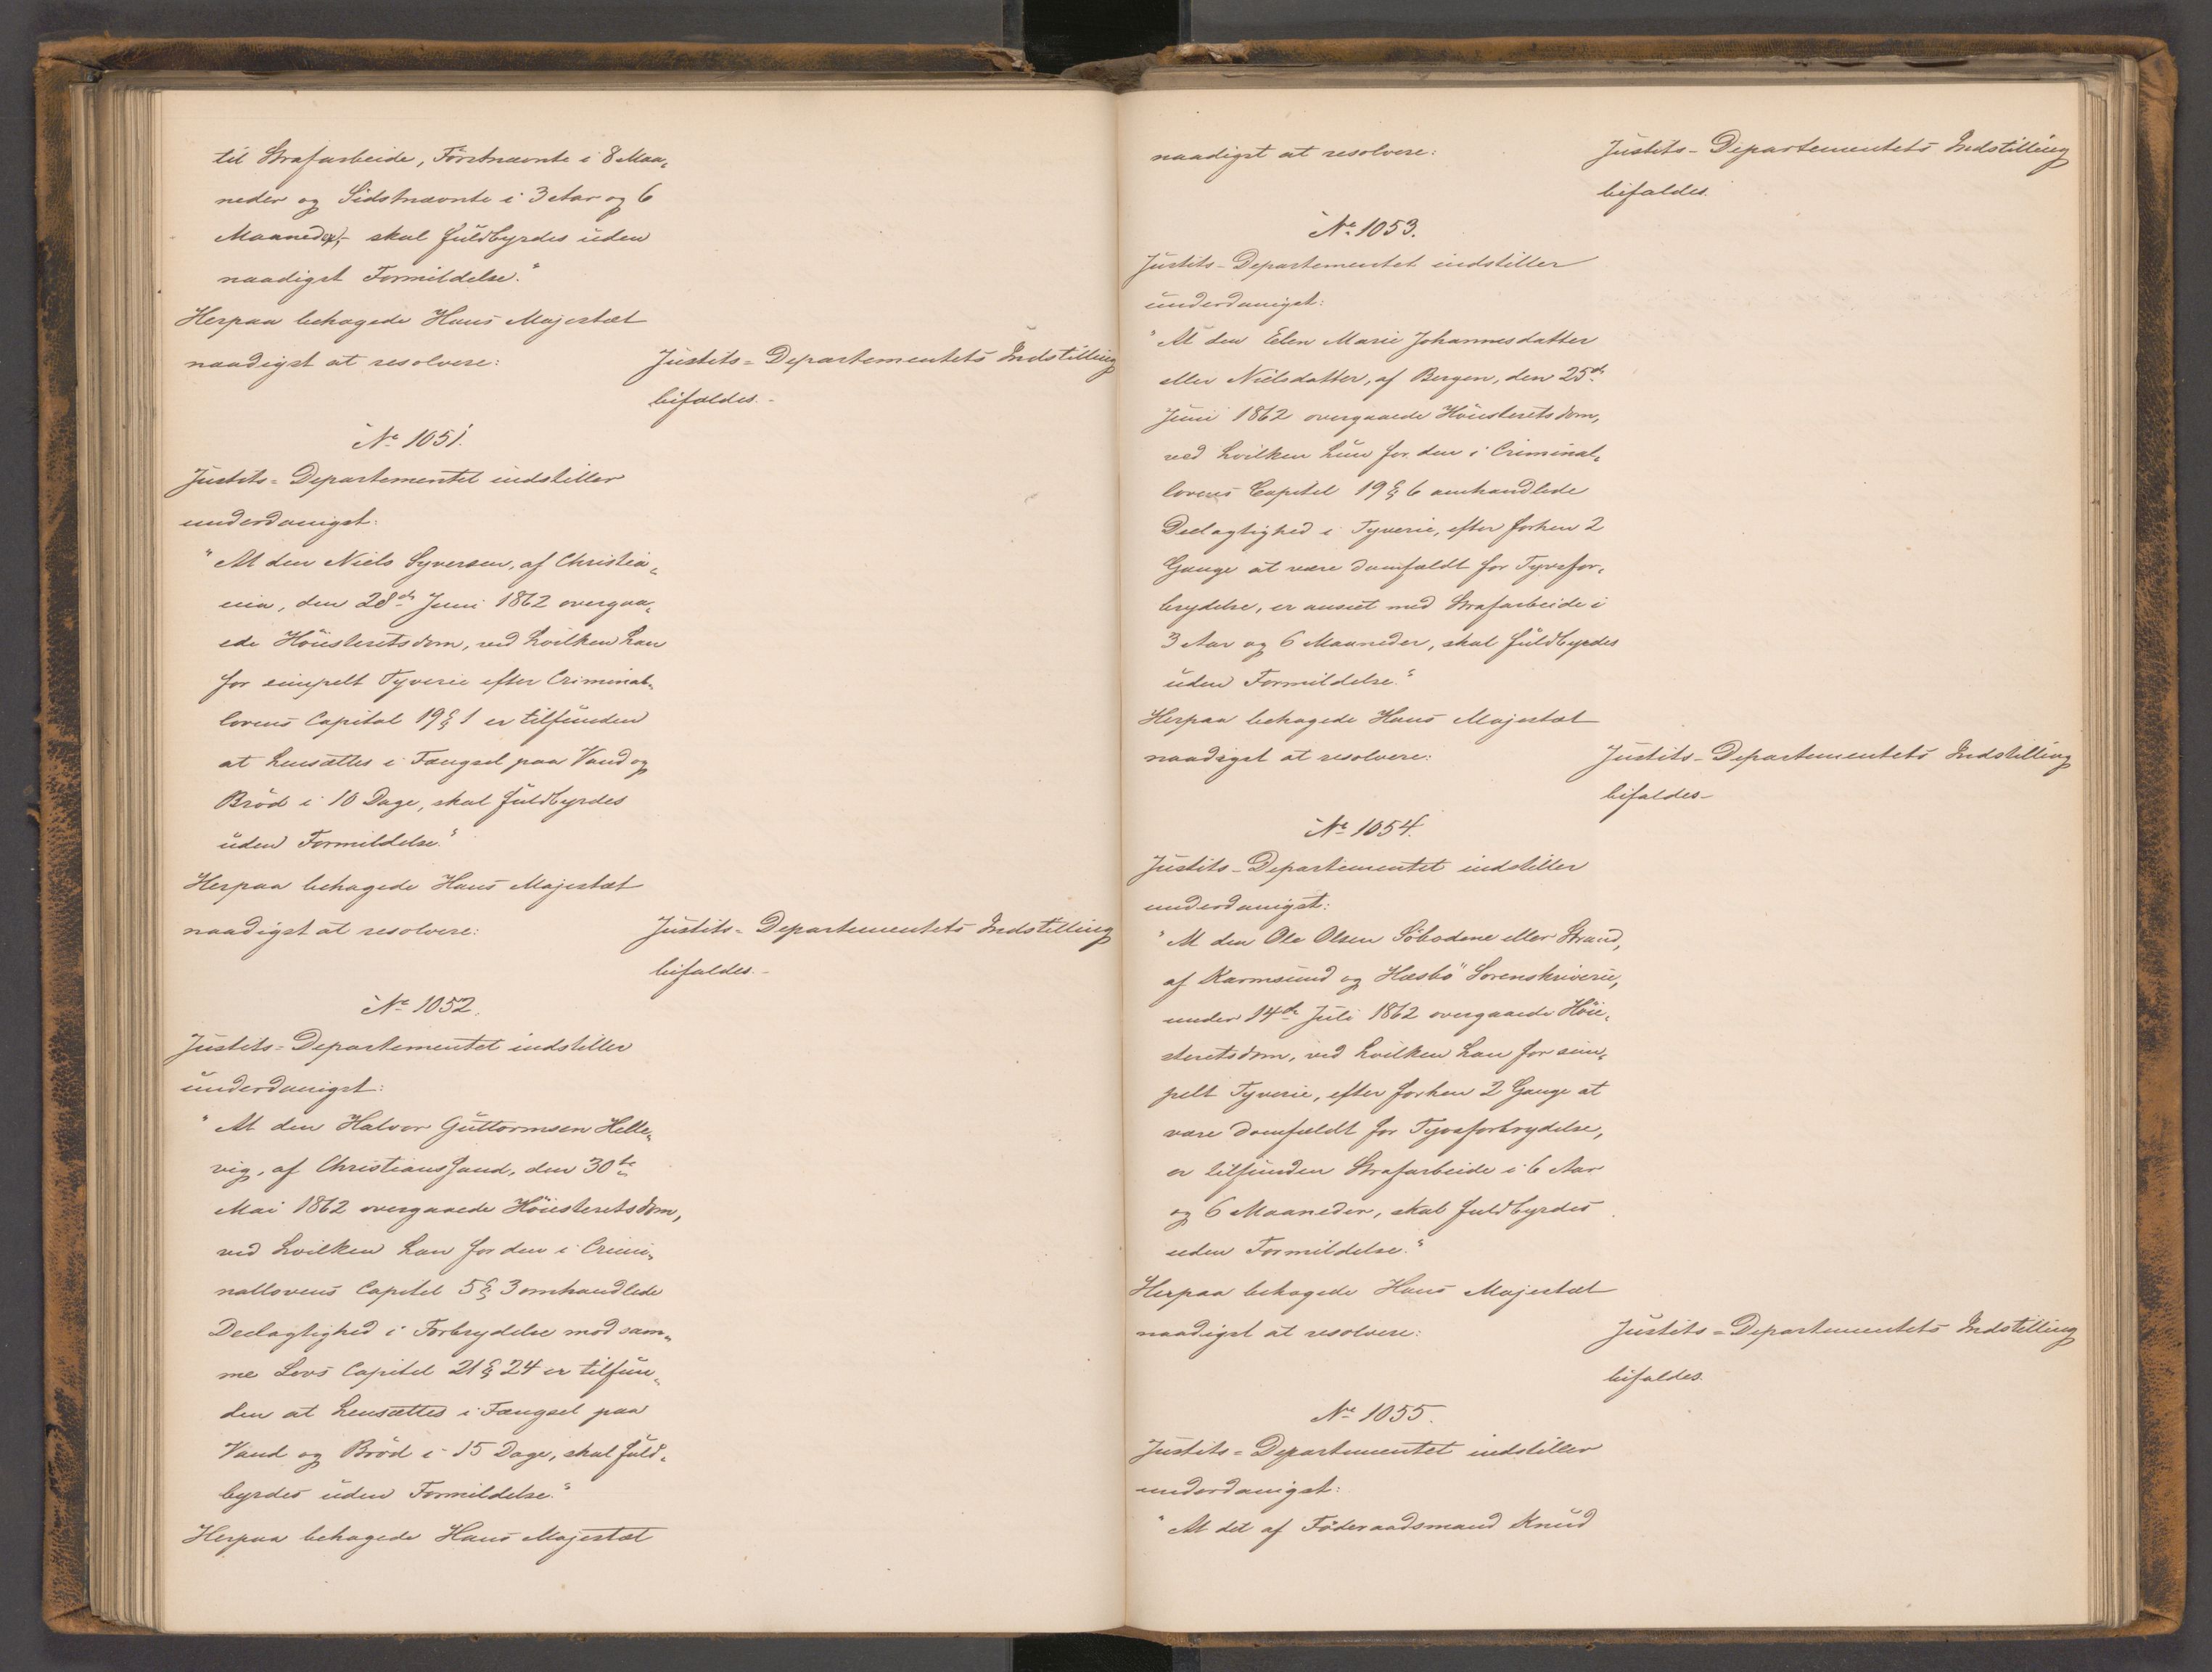 til Strafarbeide, Førstnævnte i 8 Maa„
neder og Sidstnævnte i 3 Aar og 6
Maaneder,- skal fuldbyrdes uden
naadigst Formildelse."
Herpaa behagede Hans Majestæt
naadigst at resolvere:
Justits=Departementets Indstilling
bifaldes.-
No 1051.
Justits=Departementet indstiller
underdanigst:
"At den Niels Syversen, af Christia„
nia, den 28de Juni 1862 overgaa„
ede Höiesteretsdom, ved hvilken han
for simpelt Tyverie efter Criminal„
lovens Capitel 19 § 1 er tilfunden
at hensættes i Fængsel paa Vand og
Bröd i 10 Dage, skal fuldbyrdes
uden Formildelse."
Herpaa behagede Hans Majestæt
naadigst at resolvere:
Justits=Departementets Indstilling
bifaldes.-
No 1052.
Justits=Departementet indstiller
underdanigst:
"At den Halvor Guttormsen Helle„
vig, af Christianssand, den 30te
Mai 1862 overgaaede Höiesteretsdom,
ved hvilken han for den i Crimi„
nallovens Capitel 5 § 3 omhandlede
Deelagtighed i Forbrydelse mod sam„
me Lovs Capitel 21 § 24 er tilfun„
den at hensættes i Fængsel paa
Vand og Bröd i 15 Dage, skal fuld„
byrdes uden Formildelse."
Herpaa behagede Hans Majestæt
naadigst at resolvere:
Justits-Departementets Indstilling
bifaldes.
No 1053.
Justits-Departementet indstiller
underdanigst:
"At den Elen Marie Johannesdatter
eller Nielsdatter, af Bergen, den 25de
Juni 1862 overgaaede Höiesteretsdom,
ved hvilken hun for den i Criminal„
lovens Capitel 19 § 6 omhandlede
Deelagtighed i Tyverie, efter forhen 2
Gange at være domfældt for Tyvsfor„
brydelse, er anseet med Strafarbeide i
3 Aar og 6 Maaneder, skal fuldbyrdes
uden Formildelse."
Herpaa behagede Hans Majestæt
naadigst at resolvere:
Justits-Departementets Indstilling
bifaldes-
No 1054.
Justits-Departementet indstiller
underdanigst:
"At den Ole Olsen Söbodene eller Strand,
af Karmsund og Hesbö Sorenskriverie,
under 14de Juli 1862 overgaaede Höie„
steretsdom, ved hvilken han for sim„
pelt Tyverie, efter forhen 2 Gange at
være domfældt for Tyvsforbrydelse,
er tilfunden Strafarbeide i 6 Aar
og 6 Maaneder, skal fuldbyrdes
uden Formildelse."
Herpaa behagede Hans Majestæt
naadigst at resolvere:
Justits=Departementets Indstilling
bifaldes.
No 1055.
Justits=Departementet indstiller
underdanigst:
"At det af Föderaadsmand Knud